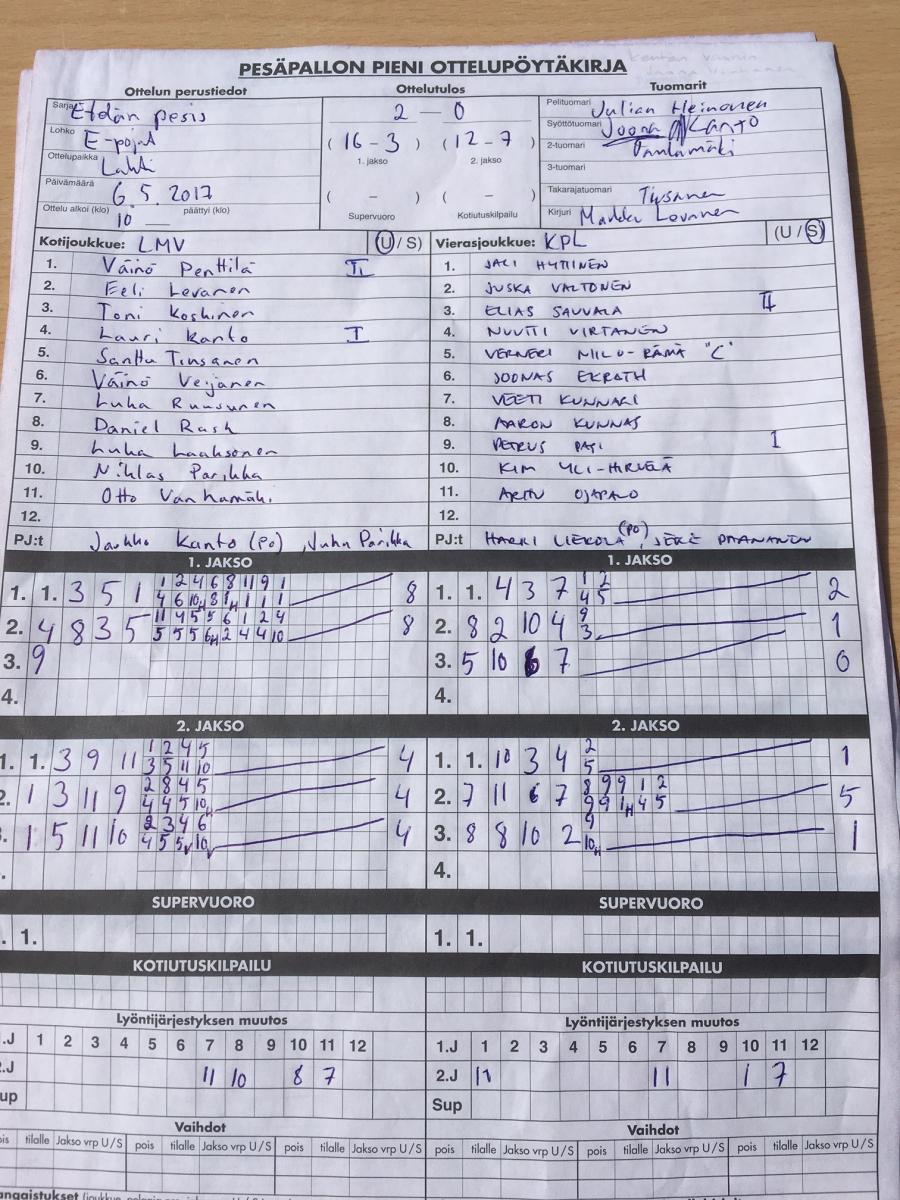 PESÄPALLON PIENI OTTELUPÖYTÄKIRJA
Ottelun perustiedot
Sarja Etelän pesis
Lohko E-pojat
Ottelupaikka Lahti
Päivämäärä 6.5.2017
Ottelu alkoi (klo) 10 päättyi (klo)
Ottelutulos
2 — 0
(16 - 3) (12 - 7)
1. jakso 2. jakso
( - ) ( - )
Supervuoro Kotiutuskilpailu
Tuomarit
Pelituomari Julian Heinonen
Syöttötuomari Joona Kanto
2-tuomari Vanhamäki
3-tuomari
Takarajatuomari Tiusanen
Kirjuri Markku Levanen
Kotijoukkue: LMV (U / S)
1. Väinö Penttilä II
2. Eeli Levanen
3. Toni Koskinen
4. Lauri Kanto I
5. Santtu Tiusanen
6. Väinö Veijanen
7. Luka Ruusunen
8. Daniel Rask
9. Luka Laaksonen
10. Niklas Parikka
11. Otto Vanhamäki
12.
PJ:t Jarkko Kanto (PO), Juha Parikka
Vierasjoukkue: KPL (U / S)
1. JALI HYTTINEN
2. JUSKA VALTONEN
3. ELIAS SAUVALA II
4. NUUTTI VIRTANEN
5. VERNERI NILO-RÄMÄ "C"
6. JOONAS EKROTH
7. VEETI KUNNARI
8. AARON KUNNAS
9. PETRUS PASI I
10. KIM YLI-HIRVELÄ
11. ARTTU OJAPALO
12.
PJ:t HARRI LIEROLA (PO), JERE PAANANEN
1. JAKSO
1. 1. 3 5 1 1 2 4 6 8 11 9 1 8
4 6 10H 8 1H 1 1 1
2. 4 8 3 5 11 4 5 5 6 1 2 4 8
5 5 5 6H 2 4 4 10
3. 9
4.
1. JAKSO
1. 1. 4 3 7 1 2 2
4 5
2. 8 2 10 4 9 1
3
3. 5 10 6 7 0
4.
2. JAKSO
1. 1. 3 9 11 1 2 4 5 4
3 5 11 10
2. 1 3 11 9 2 8 4 5 4
4 4 5 10H
1 5 11 10 2 3 4 6 4
4 5 5 10
2. JAKSO
1. 1. 10 3 4 2 1
5
2. 7 11 6 7 8 9 9 1 2 5
9 9 1H 4 5
3. 8 8 10 2 9 1
10H
4.
SUPERVUORO
1.
SUPERVUORO
1. 1.
KOTIUTUSKILPAILU
KOTIUTUSKILPAILU
Lyöntijärjestyksen muutos
1.J 1 2 3 4 5 6 7 8 9 10 11 12
2.J 11 10 8 7
Sup
Lyöntijärjestyksen muutos
1.J 1 2 3 4 5 6 7 8 9 10 11 12
2.J 11 11 1 7
Sup
Vaihdot
pois tilalle Jakso vrp U / S pois tilalle Jakso vrp U / S pois tilalle Jakso vrp U / S
Vaihdot
pois tilalle Jakso vrp U / S pois tilalle Jakso vrp U / S pois tilalle Jakso vrp U / S